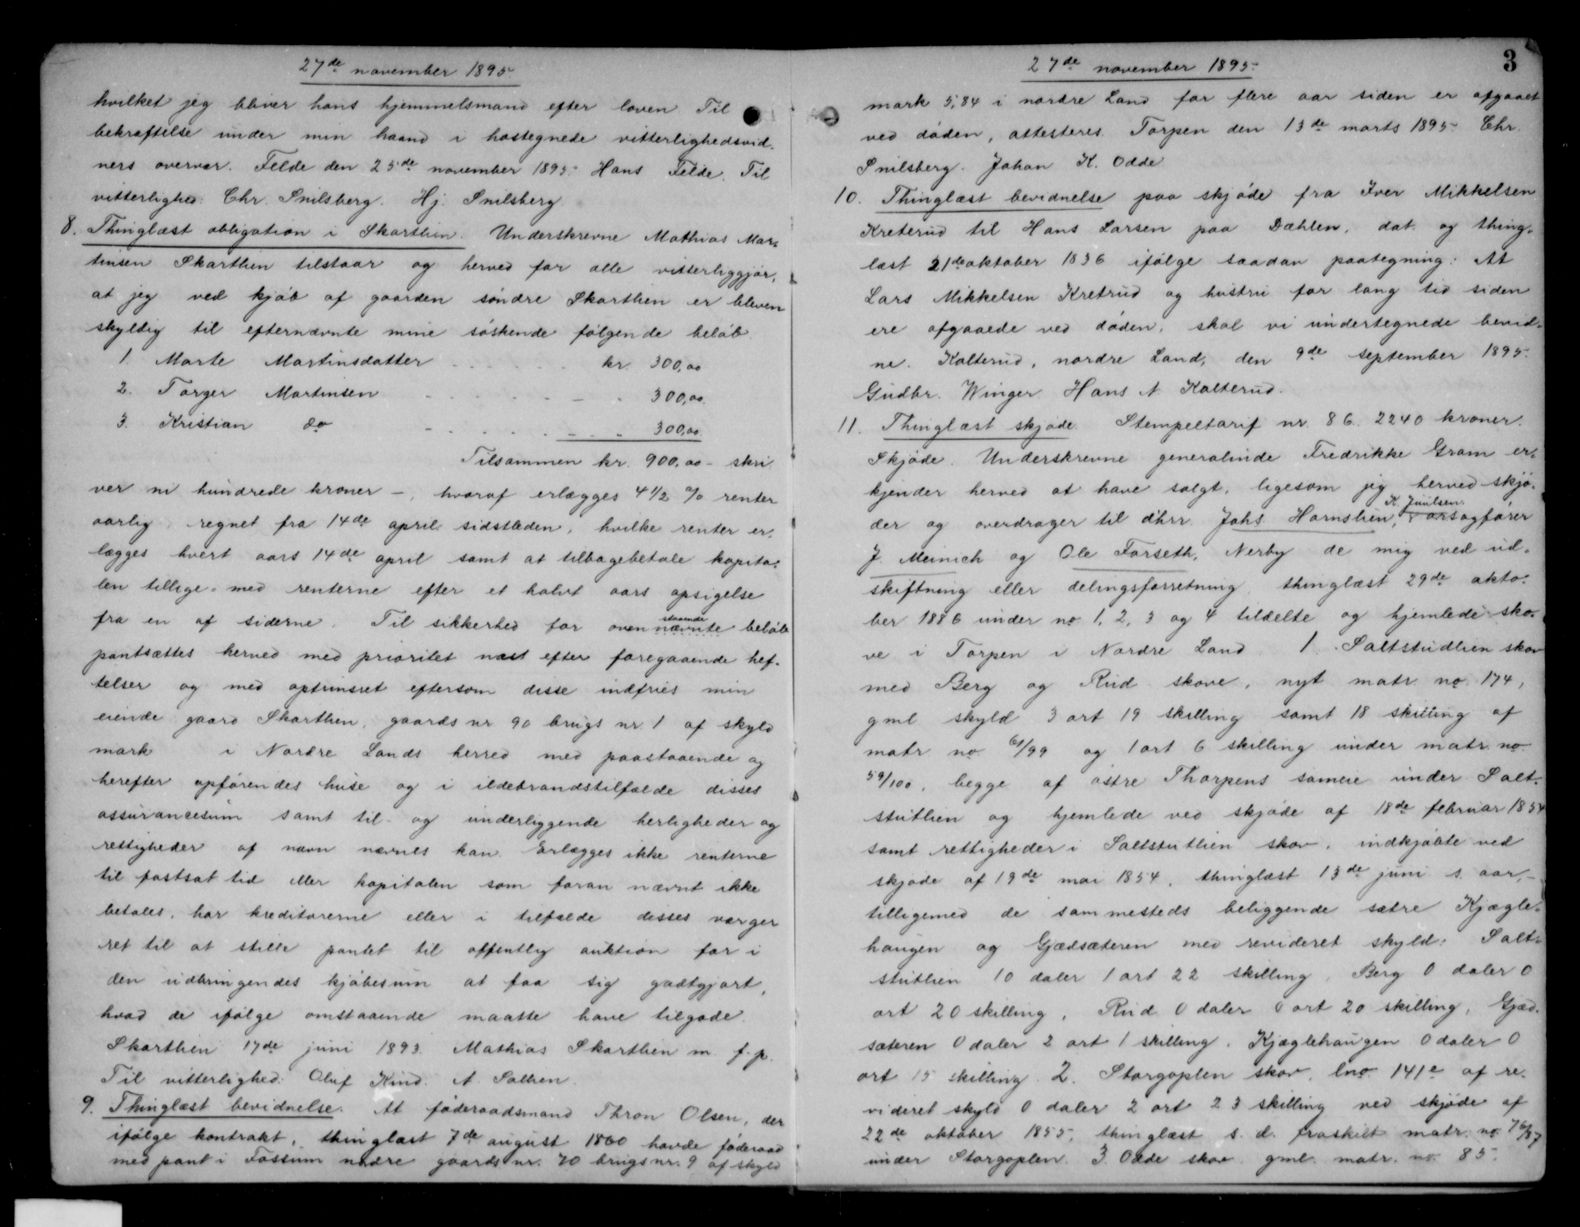 27de november 1895
hvilket jeg bliver hans hjemmelsmand efter loven Til
bekræftelse under min haand i hostegnede vitterlighedsvid-
ners overvær. Felde den 25de november 1895. Hans Felde. Til
vitterlighed: Chr. Snilsberg. Hj. Snilsberg
8. Thinglæst obligation i Skarthin. Underskrevne Mathias Mar-
tinsen Skarthien tilstaar og herved for alle vitterliggjør,
at jeg ved kjøb af gaarden søndre Skarthien er bleven
skyldig til efternævnte mine søskende følgende beløb
1. Marte Martinsdatter . . . . . . kr. 300,00
2. Torger Martinsen . . . . - . 300,00.
3. Kristian do . . . . - . 300,00
Tilsammen kr. 900,00 - skri
ver ni hundrede kroner -, hvoraf erlægges 4 1/2 % renter
aarlig, regnet fra 14de april sidstleden, hvilke renter er-
lægges hvert aars 14de april samt at tilbagebetale kapita-
len tillige-med renterne efter et halvt aars opsigelse
fra en af siderne. Til sikkerhed for ovennævnte staaende beløb
pantsættes herved med prioritet næst efter foregaaende hef-
telser og med optrinsret eftersom disse indfries min
eiende gaard Skarthien, gaards nr 90 brugs nr. 1 af skyld
mark i Nordre Lands herred med paastaaende og
herefter opførendes huse og i ildebrandstilfælde disses
assurancesum samt til- og underliggende herligheder og
rettigheder af navn nævnes kan. Erlægges ikke renterne
til fastsat tid eller kapitalen som foran nævnt ikke
betales, har kreditorerne eller i tilfælde disses værger
ret til at stille pantet til offentlig auktion for i
den udbringendes kjøbesum at faa sig godtgjort,
hvad de ifølge omstaaende maatte have tilgode.
Skarthien 17de juni 1893. Mathias Skarthien m. f. p.
Til vitterlighed: Oluf Kind. A. Solhen
9. Thinglæst bevidnelse. At føderaadsmand Thron Olsen, der
ifølge kontrakt, thinglæst 7de august 1860 havde føderaad
med pant i Fossum nedre gaards nr. 70 brugs nr. 9 af skyld
27de november 1895.
3
mark 5,84 i nordre Land for flere aar siden er afgaaet
ved døden, attesteres. Torpen den 13de marts 1895 Chr.
Snilsberg. Johan K. Odde
10. Thinglæst bevidnelse paa skjøde fra Iver Mikkelsen
Kreterud til Hans Larsen paa Dæhlen, dat. og thing-
læst 21de oktober 1836 ifølge saadan paategning: At
Lars Mikkelsen Kretrud og hustru for lang tid siden
ere afgaaede ved døden, skal vi undertegnede bevid-
ne. Kolterud, nordre Land, den 9de september 1895.
Gudbr. Winger Hans A Kolterud.
11. Thinglæst skjøde. Stempeltarif nr. 86. 2240 kroner.
Skjøde. Underskrevne generalinde Fredrikke Gram er-
kjender herved at have solgt, ligesom jeg herved skjø-
der og overdrager til d'hrr. Johs Hornslien, K. Juulsen, sagfører
J. Meinich og Ole Forseth, Nerby de mig ved ud-
skiftning eller delingsforretning thinglæst 29de okto-
ber 1886 under no 1, 2, 3 og 4 tildelte og hjemlede sko-
ve i Torpen i Nordre Land 1. Saltstudlien skov
med Berg og Rud skove, nyt matr. no. 174,
gml skyld 3 ort 19 skilling samt 18 skilling af
matr no 61/99 og 1 ort 6 skilling under matr. no
59/100, begge af østre Thorpens sameie under Salt-
stutlien og hjemlede ved skjøde af 18de februar 1854
samt rettigheder i Saltstutlien skov, indkjøbte ved
skjøde af 19de mai 1854, thinglæst 13de juni s. aar,-
tilligemed de sammesteds beliggende sætre Kjægle-
haugen og Gjædsæteren med revideret skyld: Salt-
stutlien 10 daler 1 ort 22 skilling, Berg 0 daler 0
ort 20 skilling, Rud 0 daler 0 ort 20 skilling, Gjæd-
sæteren 0 daler 2 ort 1 skilling. Kjæglehaugen 0 daler 0
ort 15 skilling. 2. Storgoplen skov, lno 141e af re-
videret skyld 0 daler 2 ort 23 skilling ved skjøde af
22de oktober 1855, thinglæst s. d. fraskilt matr. no 76/87
under Storgoplen. 3. Odde skov gml. matr. no 85.